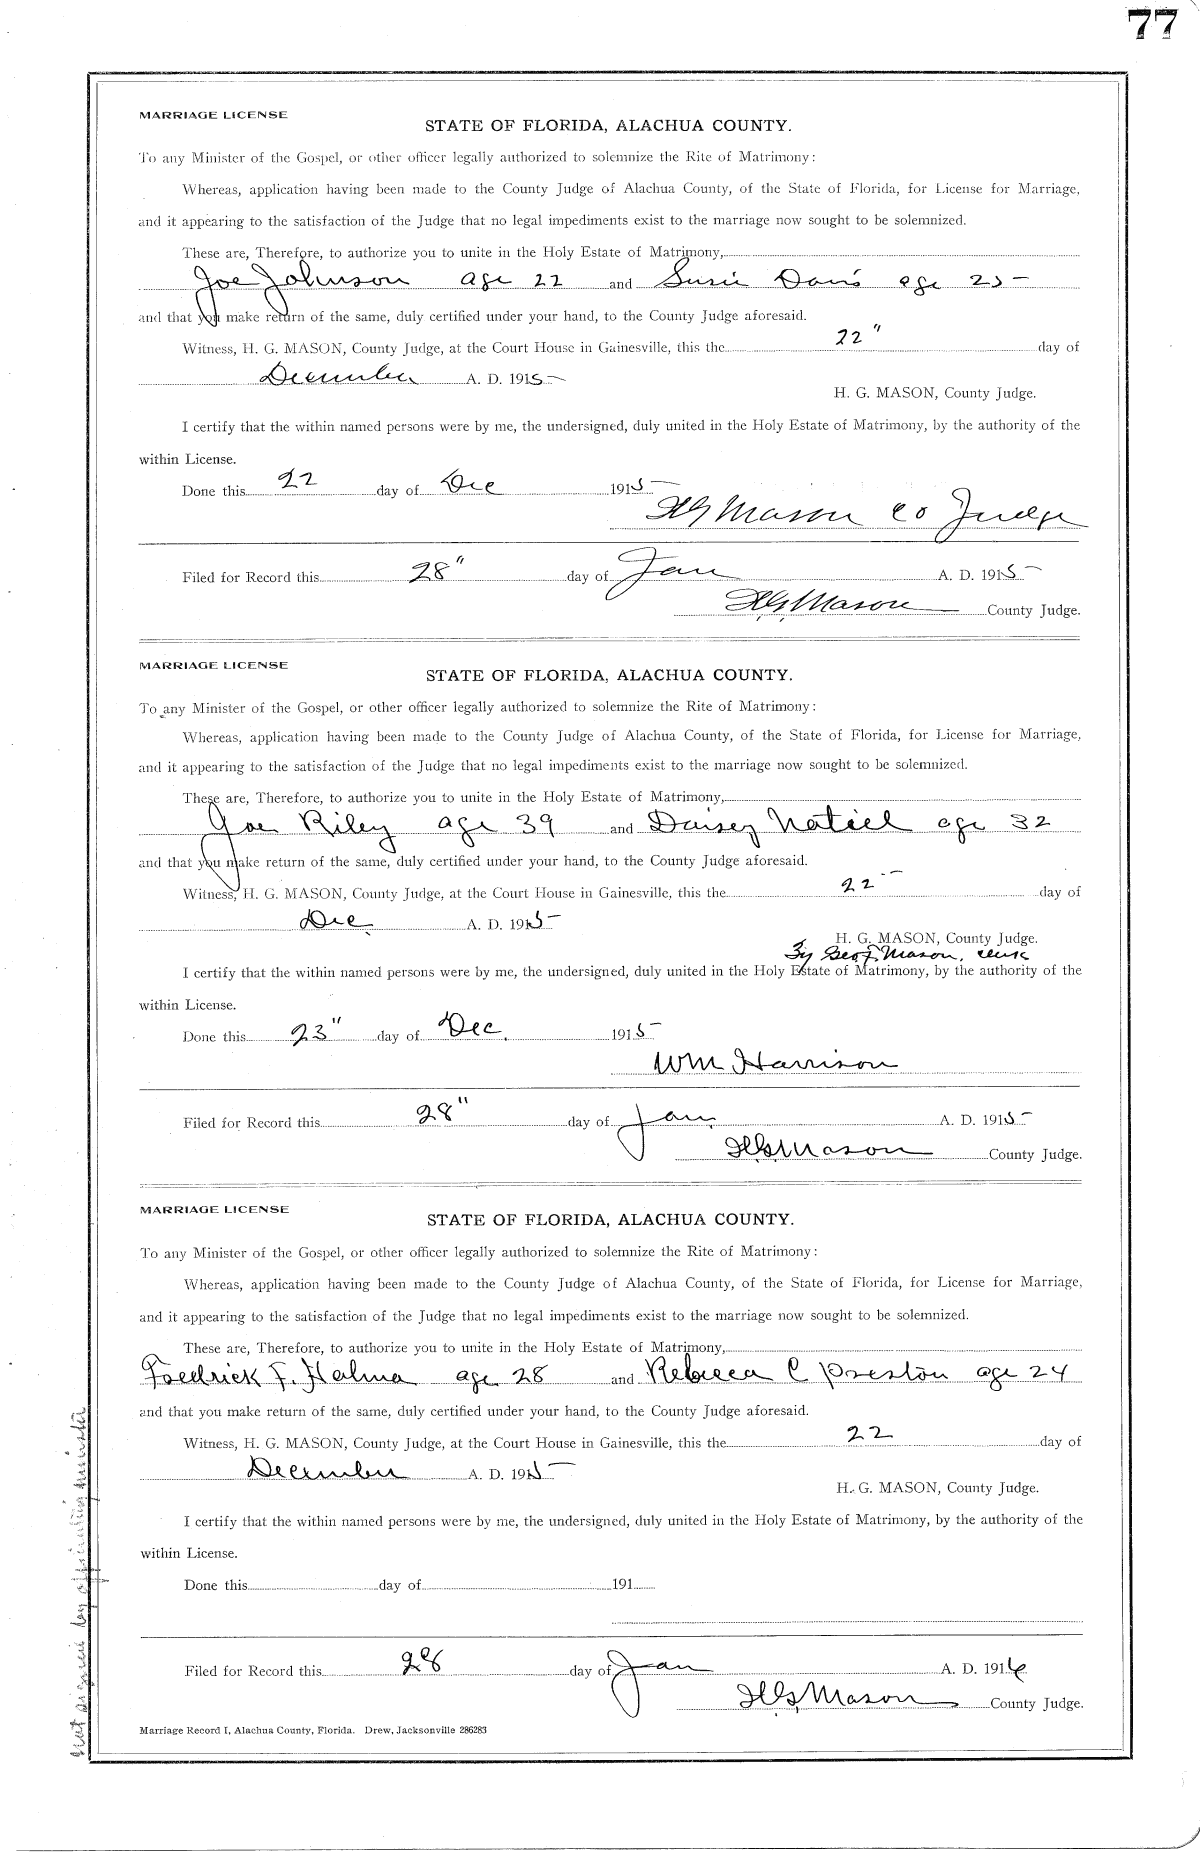 77
MARRIAGE LICENSE
STATE OF FLORIDA, ALACHUA COUNTY.
To any Minister of the Gospel, or other officer legally authorized to solemnize the Rite of Matrimony:
Whereas, application having been made to the County Judge of Alachua County, of the State of Florida, for License for Marriage,
and it appearing to the satisfaction of the Judge that no legal impediments exist to the marriage now sought to be solemnized.
These are, Therefore, to authorize you to unite in the Holy Estate of Matrimony,
Joe Johnson age 22 and Susie Davis age 25
and that you make return of the same, duly certified under your hand, to the County Judge aforesaid.
Witness, H. G. MASON, County Judge, at the Court House in Gainesville, this the 22" day of
December A. D. 1915
H. G. MASON, County Judge.
I certify that the within named persons were by me, the undersigned, duly united in the Holy Estate of Matrimony, by the authority of the
within License.
Done this 22 day of Dec 1915
HG Mason Co Judge
Filed for Record this 28" day of Jan A. D. 1915
H.G. Mason County Judge.
MARRIAGE LICENSE
STATE OF FLORIDA, ALACHUA COUNTY.
To any Minister of the Gospel, or other officer legally authorized to solemnize the Rite of Matrimony:
Whereas, application having been made to the County Judge of Alachua County, of the State of Florida, for License for Marriage,
and it appearing to the satisfaction of the Judge that no legal impediments exist to the marriage now sought to be solemnized.
These are, Therefore, to authorize you to unite in the Holy Estate of Matrimony,
Joe Riley age 39 and Daisey Natiel age 32
and that you make return of the same, duly certified under your hand, to the County Judge aforesaid.
Witness, H. G. MASON, County Judge, at the Court House in Gainesville, this the 22 day of
Dec. A. D. 1915
H. G. MASON, County Judge.
By Geo F. Mason, clerk
I certify that the within named persons were by me, the undersigned, duly united in the Holy Estate of Matrimony, by the authority of the
within License.
Done this 23" day of Dec. 1915
Wm Harrison
Filed for Record this 28" day of Jan. A. D. 1915
H.G. Mason County Judge.
MARRIAGE LICENSE
STATE OF FLORIDA, ALACHUA COUNTY.
To any Minister of the Gospel, or other officer legally authorized to solemnize the Rite of Matrimony:
Whereas, application having been made to the County Judge of Alachua County, of the State of Florida, for License for Marriage,
and it appearing to the satisfaction of the Judge that no legal impediments exist to the marriage now sought to be solemnized.
These are, Therefore, to authorize you to unite in the Holy Estate of Matrimony,
Fredrick F. Halma age 28 and Rebecca C Preston age 24
and that you make return of the same, duly certified under your hand, to the County Judge aforesaid.
Witness, H. G. MASON, County Judge, at the Court House in Gainesville, this the 22 day of
December A. D. 1915
H. G. MASON, County Judge.
I certify that the within named persons were by me, the undersigned, duly united in the Holy Estate of Matrimony, by the authority of the
within License.
Done this day of 191
Filed for Record this 28 day of Jan A. D. 1916
H.G. Mason County Judge.
Marriage Record I, Alachua County, Florida. Drew, Jacksonville 286283
not signed by officiating minister